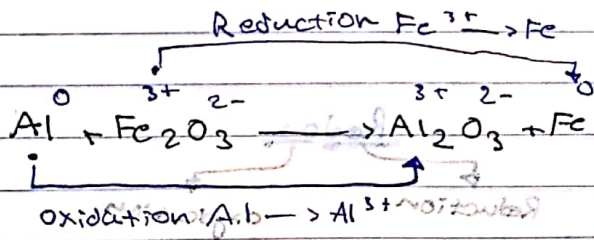 Reduction Fe³⁺ → Fe
Al⁰ + Fe₂³⁺O₃²⁻ → Al₂³⁺O₃²⁻ + Fe⁰
oxidation: A.b → Al³⁺